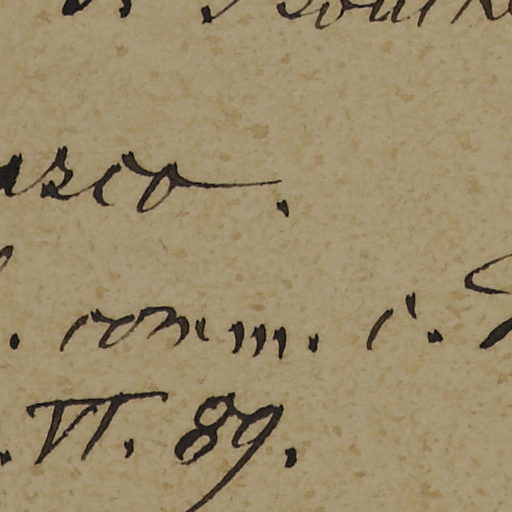 asco.
. comm. c.
. VI. 89.